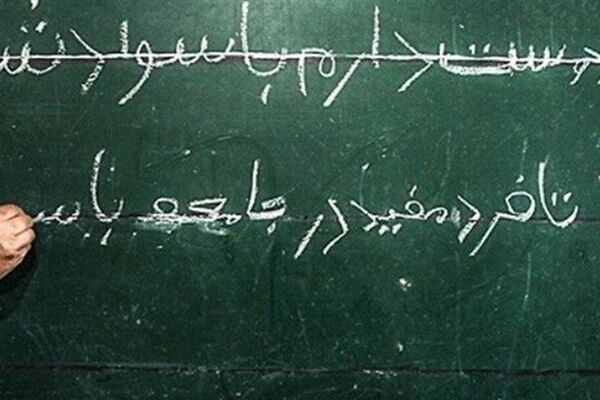 دوست دارم باسواد ش
تا فرد مفید در جامعه باس